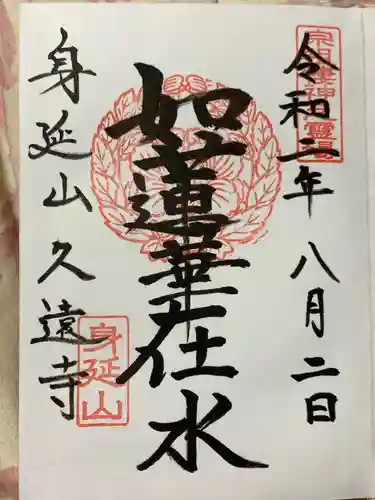 令和二年八月二日
如蓮華在水
身延山久遠寺
身延山